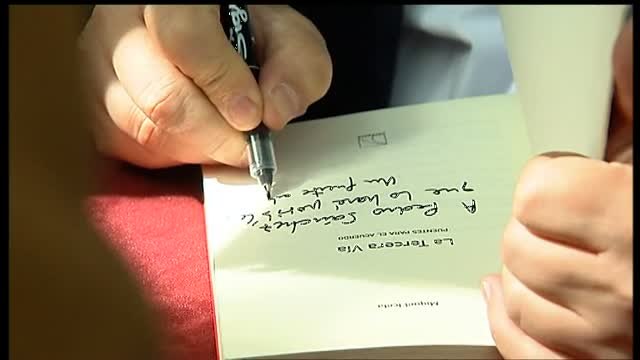 Miquel Iceta
La Tercera Vía
PUENTES PARA EL ACUERDO
A Pedro Sánchez,
que lo hará posible
Un fuerte